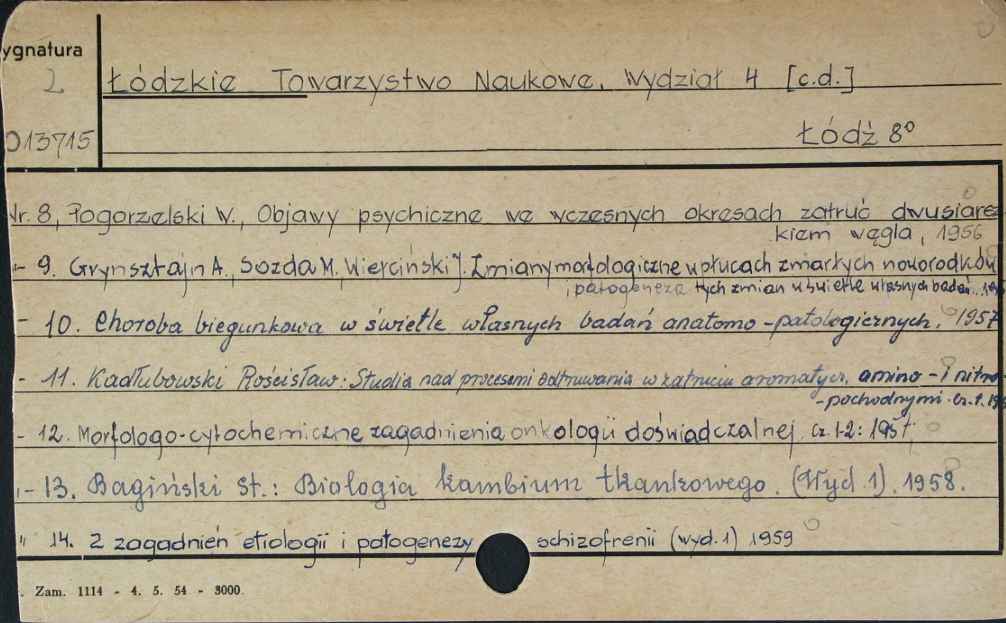 ygnatura
2
Łódzkie Towarzystwo Naukowe. Wydział 4 [c.d.]
013715
Łódź 8°
Nr. 8, Pogorzelski W., Objawy psychiczne we wczesnych okresach zatruć dwusiarc
kiem węgla, 1956
- 9. Grynsztajn A., Sozda M. Wierciński J. Zmiany morfologiczne w płucach zmarłych noworodków
i patogeneza tych zmian w świetle własnych badań.
- 10. Choroba biegunkowa w świetle własnych badań anatomo-patologicznych. 1957
- 11. Kadłubowski Rościsław: Studia nad procesemi odtruwania w zatruciu aromatycz. amino- i nitro-
-pochodnymi. Cz. 1.
- 12. Morfologo-cytochemiczne zagadnienia onkologii doświadczalnej. Cz. 1-2: 1957.
- 13. Bagiński St.: Biologia kambium tkankowego. (Wyd. 1). 1958.
" 14. Z zagadnień etiologii i patogenezy schizofrenii (wyd. 1) 1959
. Zam. 1114 - 4. 5. 54 - 3000.